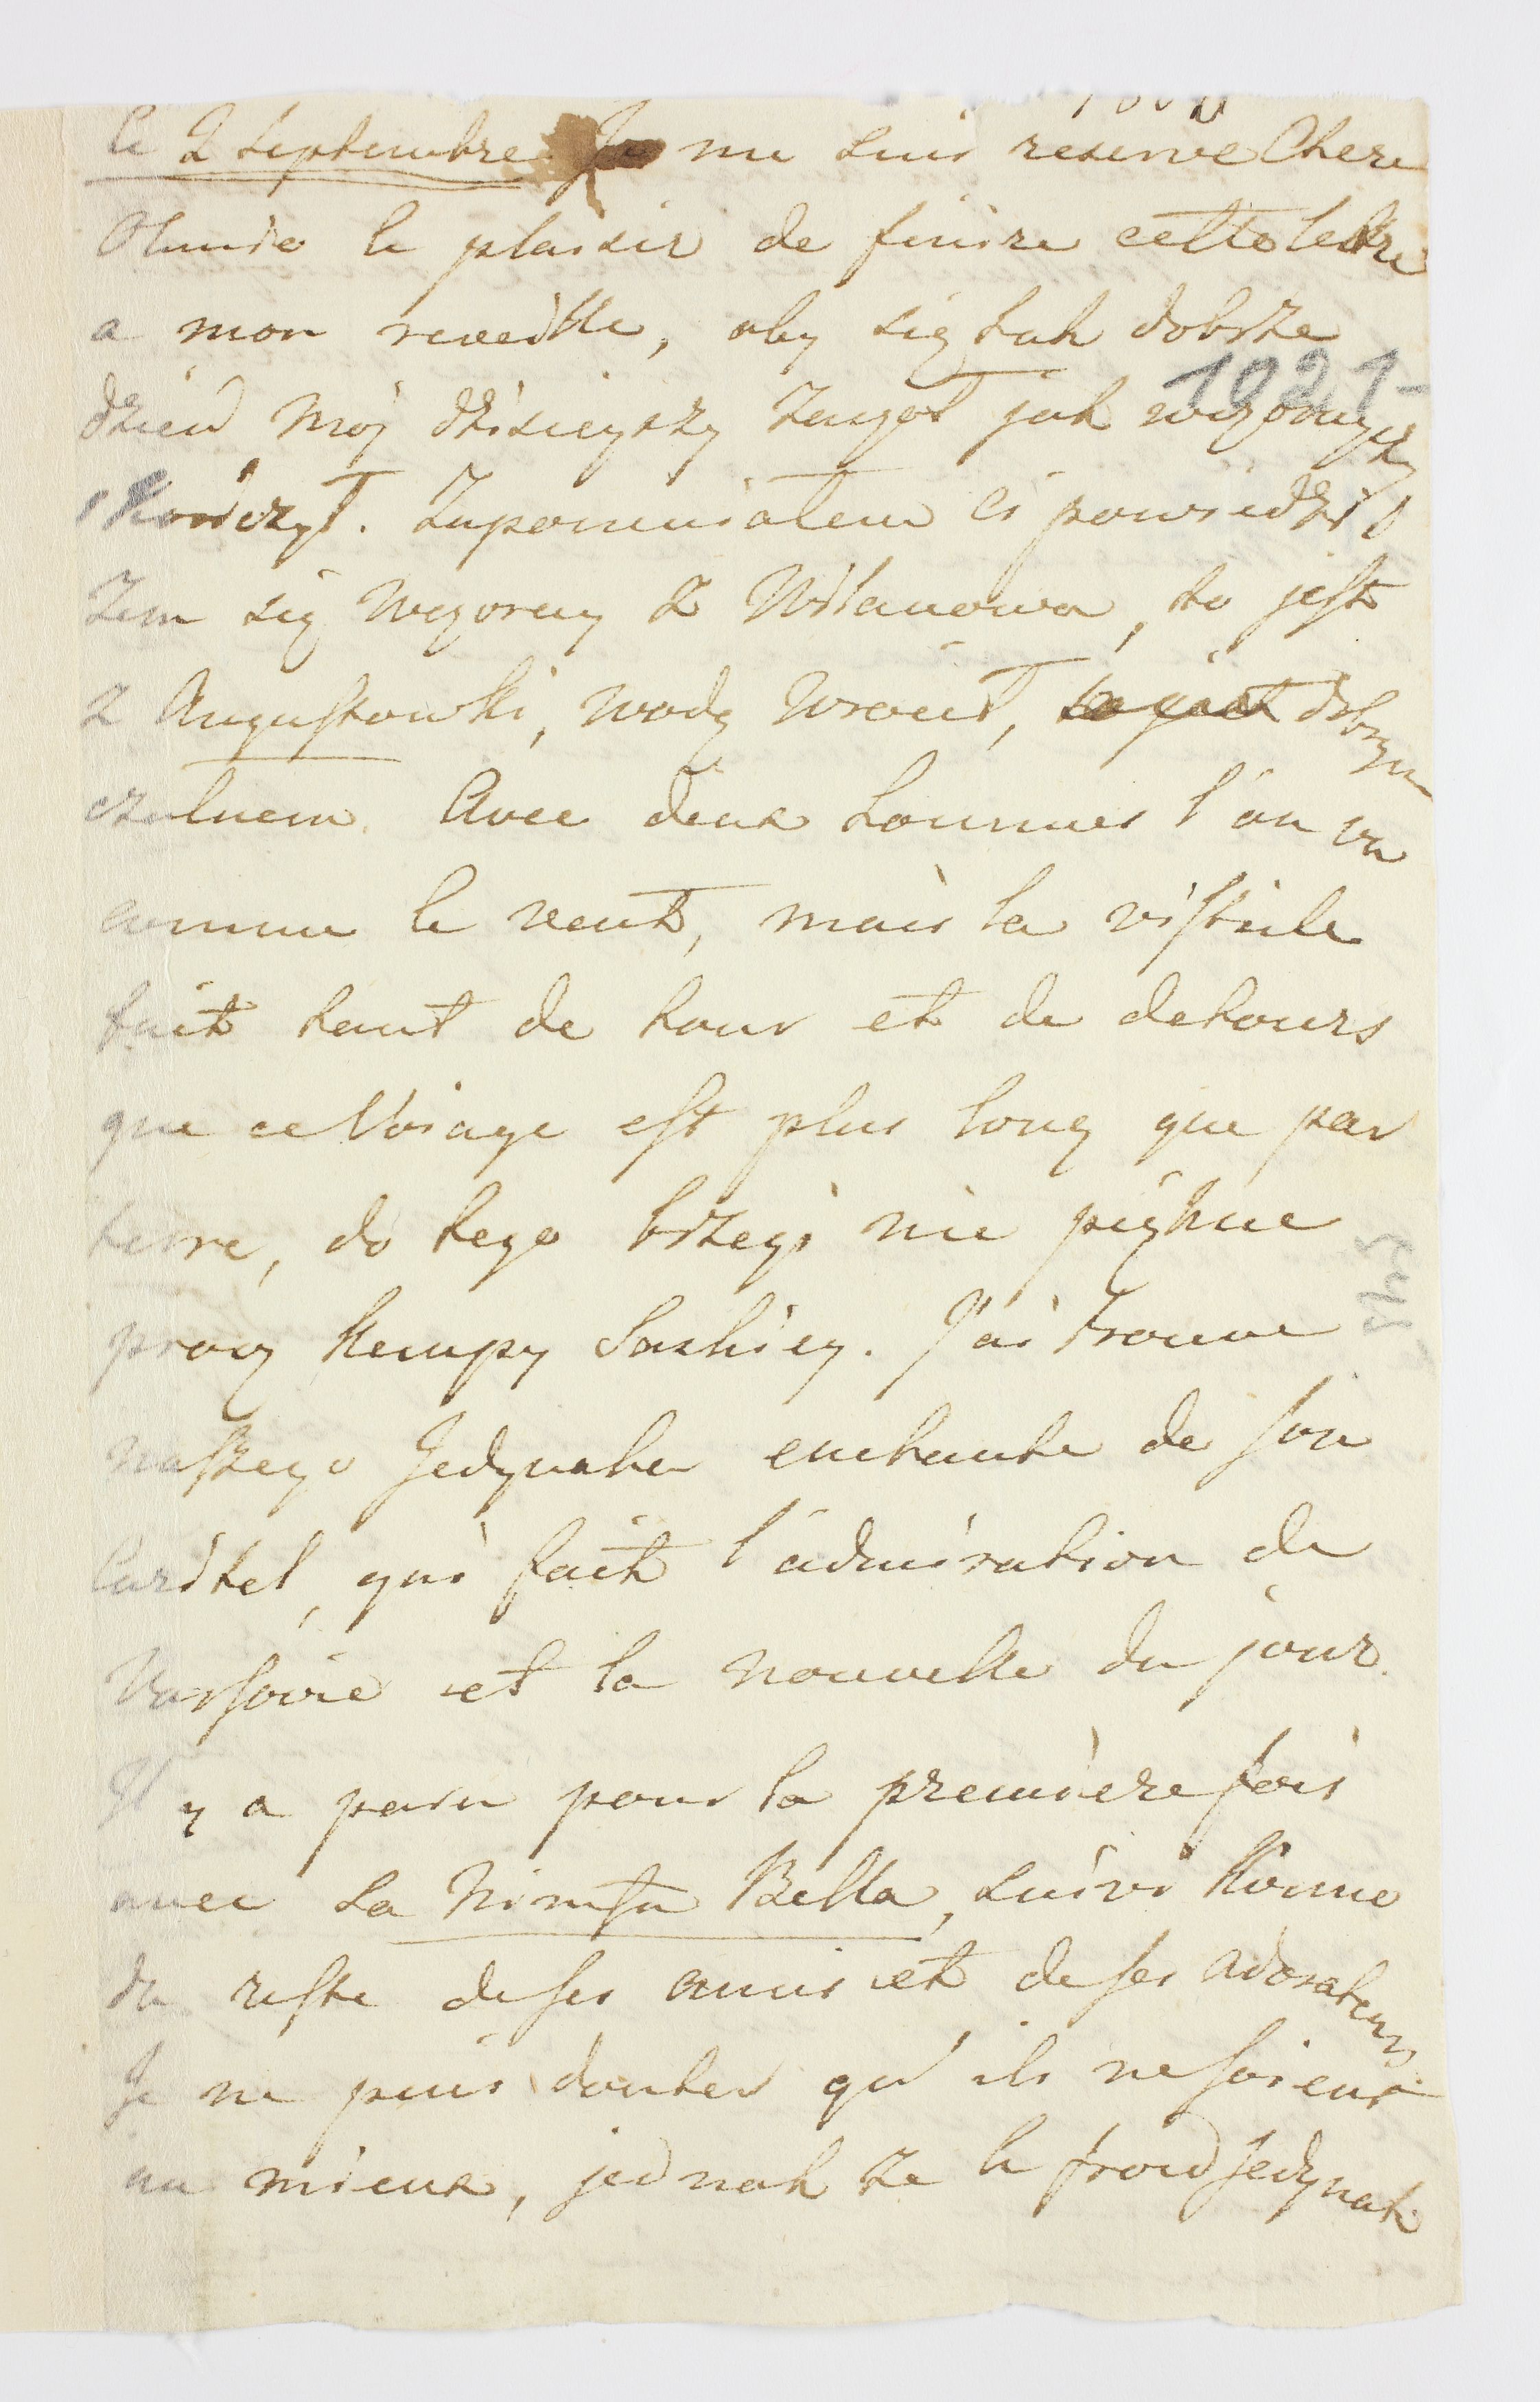 le 2 Septembre Je me suis reservé Chere
Olunio le plaisir de finire cette lettre
a mon reveille, aby się tak dobrze
1021
dzień mój dzisieyszy zaczoł jak wczorayszy
skończył. Zapomniałem ci powiedzić
żem się wczoray z Wilanowa, to jest
z Augustowki, wodą wrócił, dobrym
czułnem. Avec deux hommes l'on va
comme le vent, mais la vistule
fait tant de tour et de detours
que ce Voiage est plus long que par
terre, do tego brzegi nie piękne
prócz Kempy Saskiey. J'ai trouvé
naszego Jedynaka enchanté de son
Curikel, qui fait l'admiration de
Varsovie et la nouvelle du jour.
Il y a paru pour la premiere fois
avec la Nimfa Bella, suivi
du reste de ses amis et de ses adorateurs
Je ne puis douter qu'ils ne soient
au mieux, jednak że le froid Jedynak